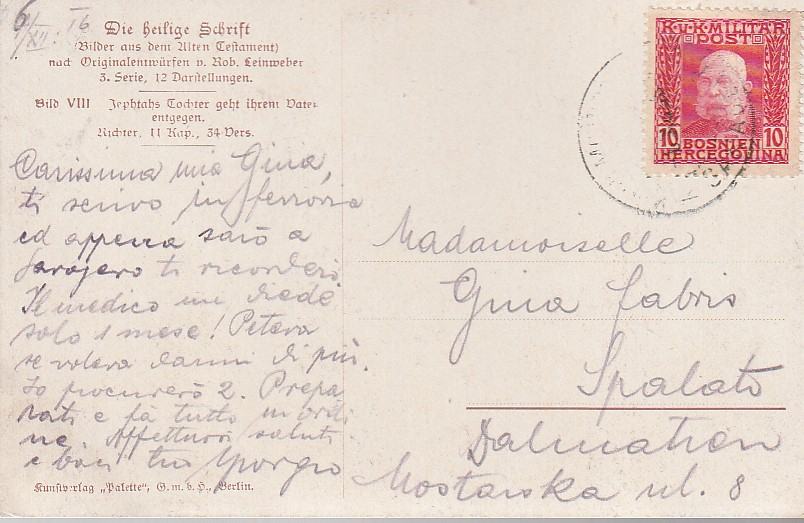 6/XII. 16
Die heilige Schrift
(Bilder aus dem Alten Testament)
nach Originalentwürfen v. Rob. Leinweber
3. Serie, 12 Darstellungen.
Bild VIII Jephtahs Tochter geht ihrem Vater
entgegen.
Richter, 11 Kap., 34 Vers.
Carissima mia Gina,
ti scrivo in ferrovia
ed appena sarò a
Sarajevo ti ricorderò.
Il medico mi diede
solo 1 mese! Poteva
se voleva darmi di più.
Io procurerò 2. Prepa
rati e fa tutto in ordi
ne. Affettuosi saluti
e baci tuo Giorgio
Kunstverlag „Palette“, G. m. b. H., Berlin.
K.u.K. MILITÄR
POST
10 10
BOSNIEN
HERCEGOVINA
Madamoiselle
Gina Fabris
Spalato
Dalmatien
Mostarska ul. 8